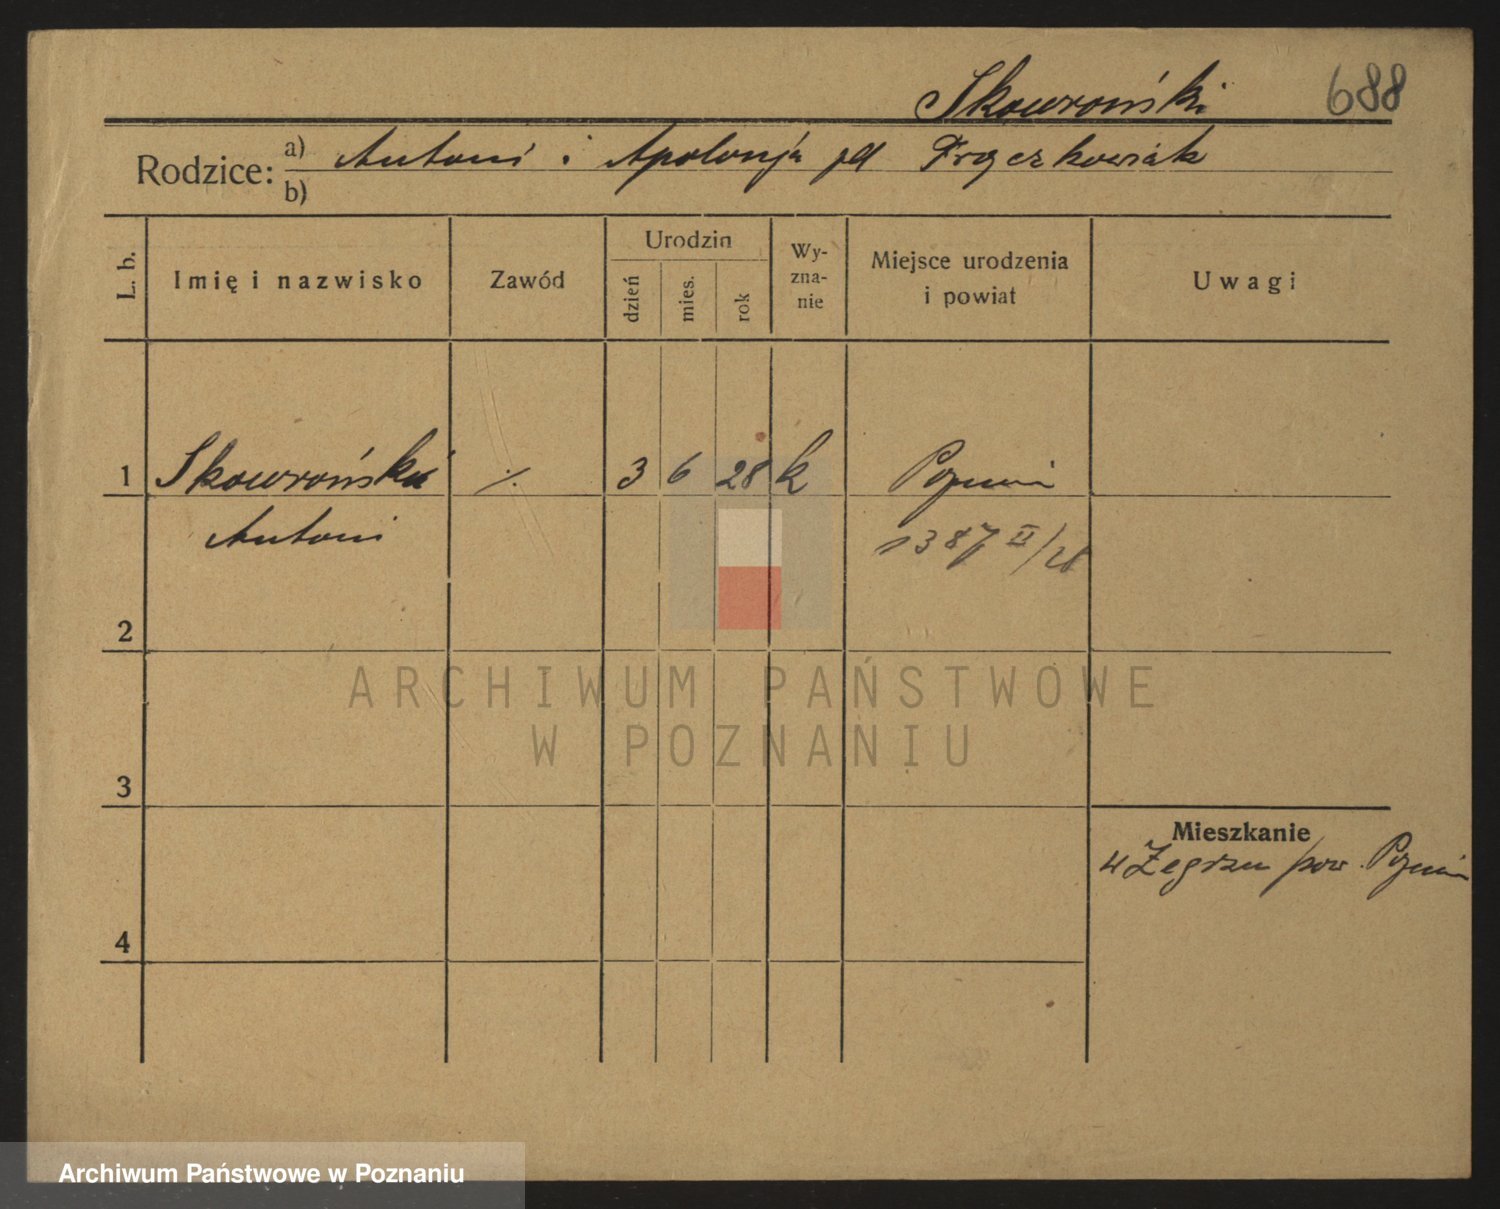 Skowroński 688
Rodzice: a) Antoni i Apolonja
b)
L. b. Imię i nazwisko Zawód Urodzin dzień mies. rok Wy-zna-nie Miejsce urodzenia i powiat Uwagi
1 Skowroński ./. 3 6 28 k Poznań
Antoni 1387 II/28
2
ARCHIWUM PAŃSTWOWE
W POZNANIU
3
Mieszkanie
w Żegrzu pow. Poznań
4
Archiwum Państwowe w Poznaniu